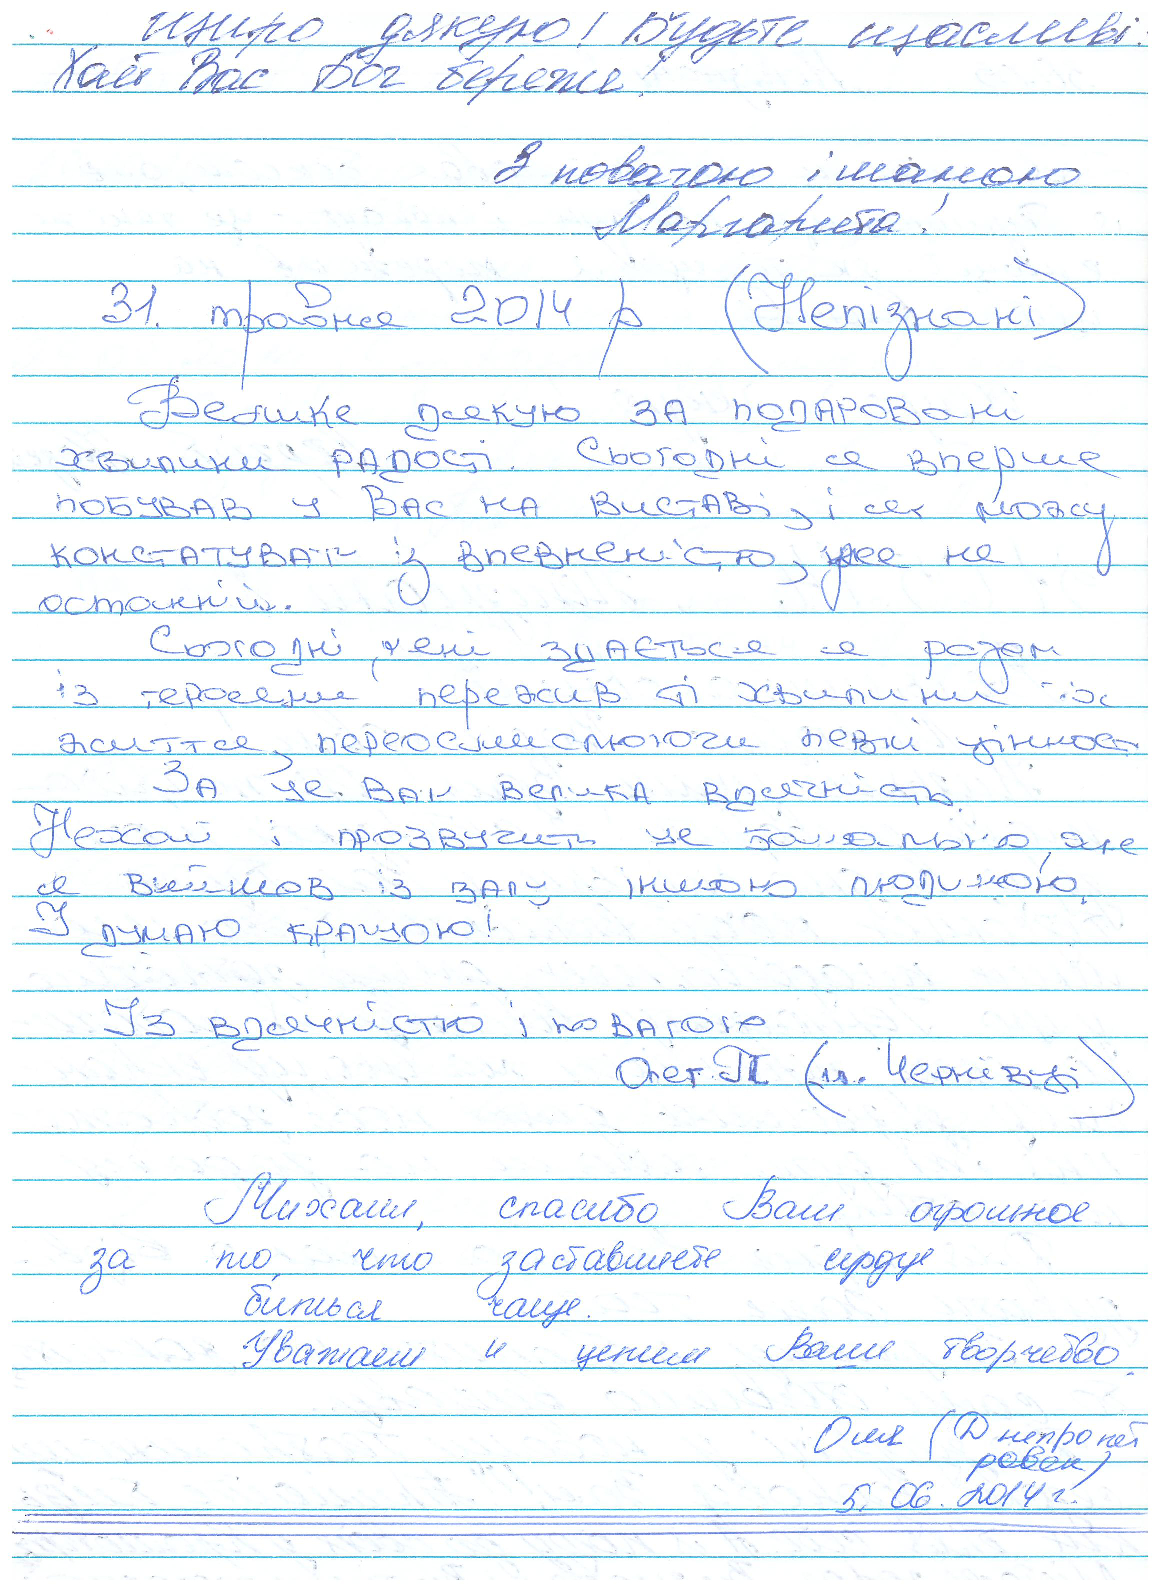 Щиро дякую! Будьте щасливі.
Хай Вас Бог береже!
З повагою і шаною
Маргарита!
31. травня 2014 р (Непізнані)
Велике дякую за подаровані
хвилини радості. Сьогодні я вперше
побував у Вас на виставі, і я можу
констатувати із впевненістю, уже не
останній.
Сьогодні, мені здається я разом
із героями пережив ті хвилини їх
життя, переосмислюючи певні цінності
За це Вам велика вдячність.
Нехай і прозвучить це банально, але
я вийшов із залу іншою людиною.
І думаю кращою!
Із вдячністю і повагою
Олег П (м. Чернівці)
Михаил, спасибо Вам огромное
за то, что заставляете сердце
биться чаще.
Уважаем и ценим Ваше творчество.
Оля (Днепропет
ровск)
5. 06. 2014 г.